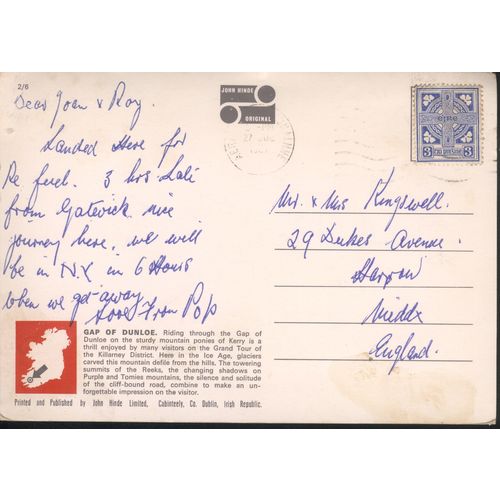 2/6
Dear Joan & Roy.
Landed Here for
Re fuel. 3 hrs Late
from Gatwick nice
journey here, we will
be in N.Y. in 6 Hours
when we get away
Love From Pop
JOHN HINDE
ORIGINAL
EIRE
3 3
Mr. & Mrs Kingswell.
29 Dukes Avenue.
Harrow
Middx
England.
GAP OF DUNLOE. Riding through the Gap of
Dunloe on the sturdy mountain ponies of Kerry is a
thrill enjoyed by many visitors on the Grand Tour of
the Killarney District. Here in the Ice Age, glaciers
carved this mountain defile from the hills. The towering
summits of the Reeks, the changing shadows on
Purple and Tomies mountains, the silence and solitude
of the cliff-bound road, combine to make an un-
forgettable impression on the visitor.
Printed and Published by John Hinde Limited, Cabinteely, Co. Dublin, Irish Republic.